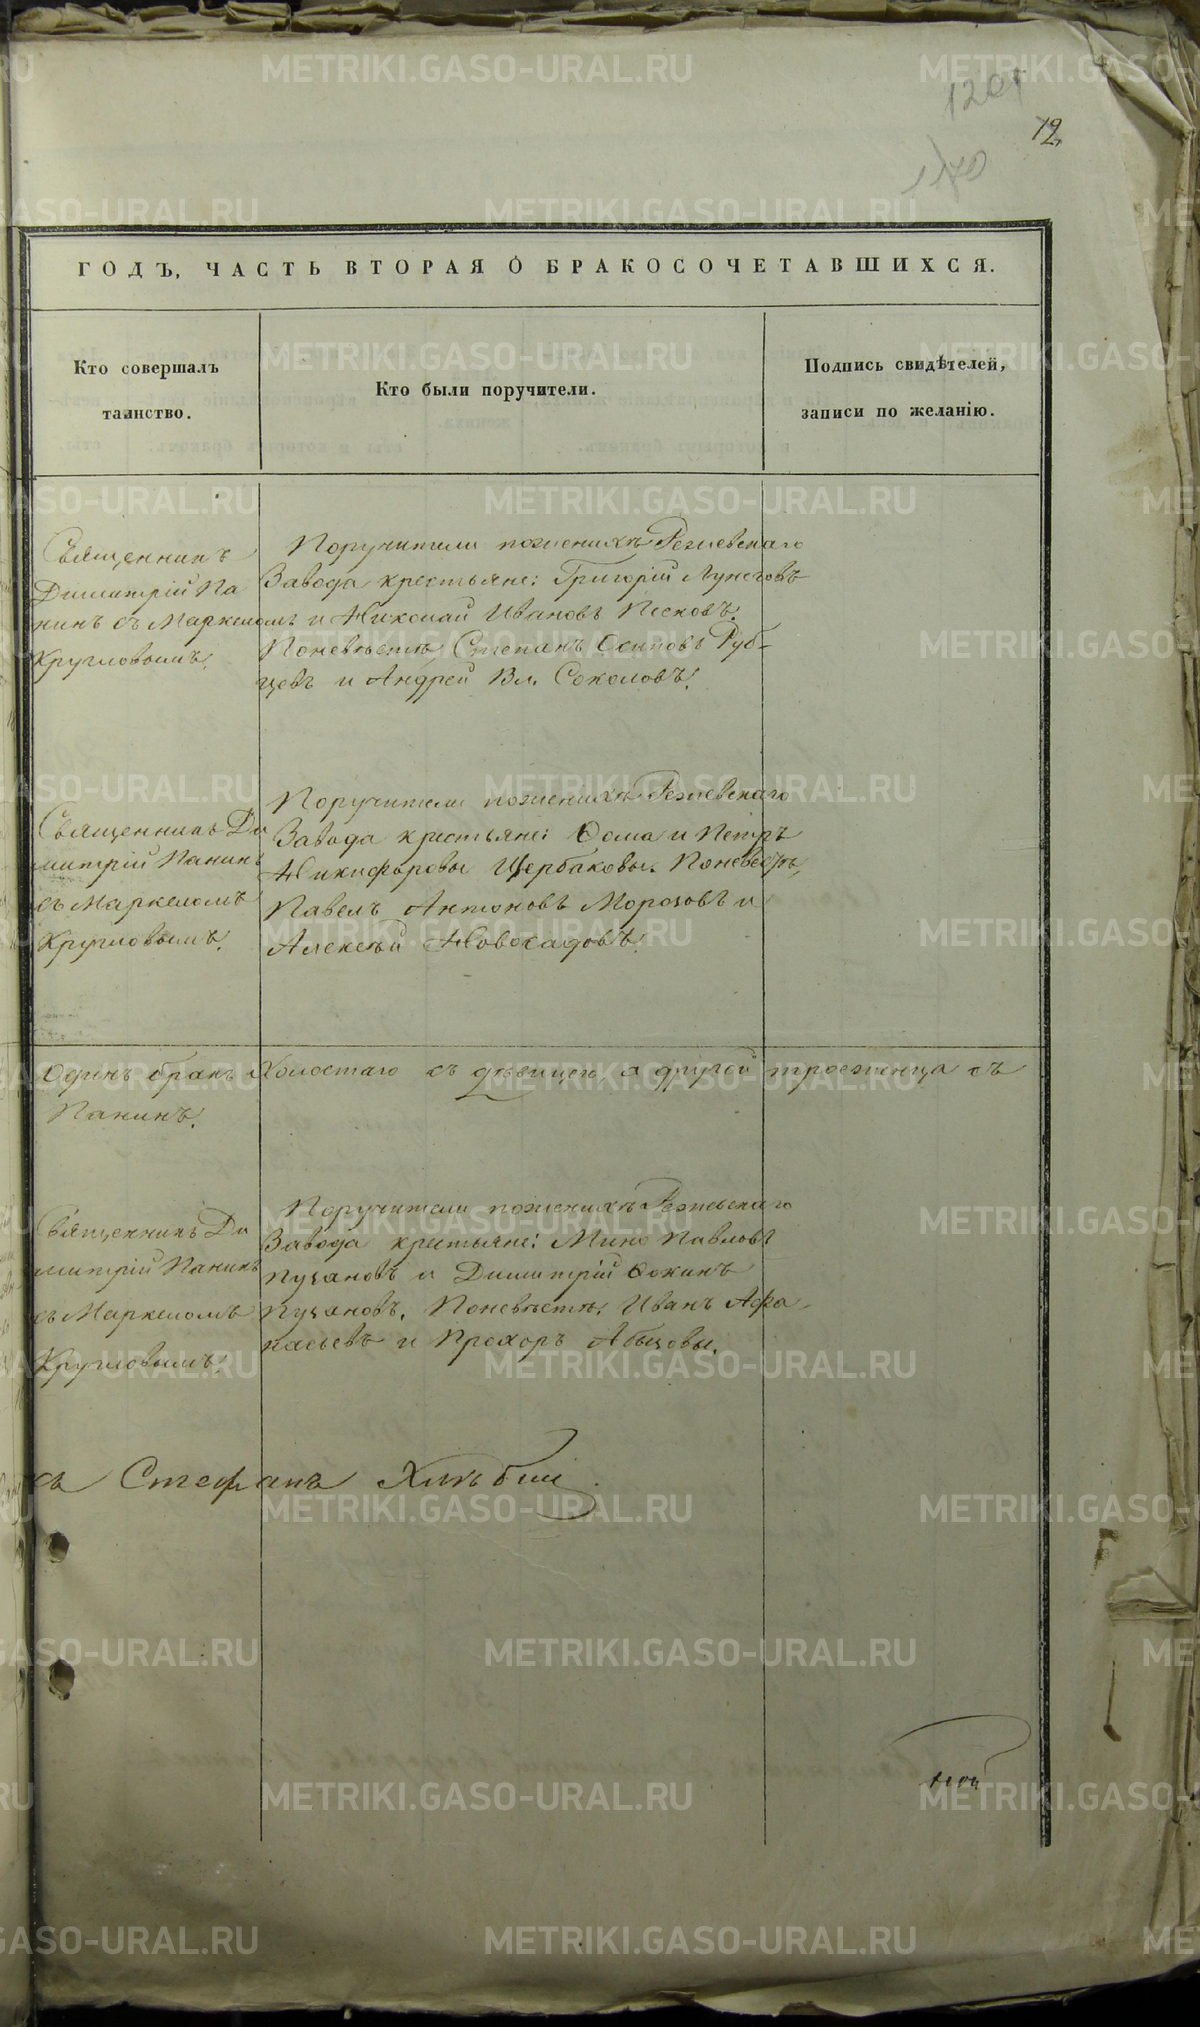 1201
12
1170
ГОДЪ, ЧАСТЬ ВТОРАЯ О БРАКОСОЧЕТАВШИХСЯ.
Кто совершалъ
таинство.
Кто были поручители.
Подпись свидѣтелей,
записи по желанію.
Священникъ
Димитрій Па
нинъ съ Маркеломъ
Кругловымъ.
Поручители пожених Режевскаго
Завода крестьяне: Григорій Лунеговъ
и Николай Ивановъ Песковъ.
Поневѣстѣ, Степанъ Осиповъ Руб-
цевъ и Андрей Вл. Соколовъ.
Священникъ Ди
митрій Панинъ
съ Маркеломъ
Кругловымъ.
Поручители пожених Режевскаго
Завода крестьяне: Ѳома и Петръ
Никифоровы Щербаковы. Поневѣстѣ,
Павелъ Антоновъ Морозовъ и
Алексѣй Новосадовъ.
Одинъ бракъ Холостаго съ дѣвицею а другой троеженца съ
Панинъ.
Священникъ Ди
митрій Панинъ
съ Маркеломъ
Кругловымъ.
Поручители пожених Режевскаго
Завода крестьяне: Павловъ
Пузановъ и Димитрій Ѳокинъ
Пузановъ. Поневѣстѣ, Иванъ Афа-
насьевъ и Прохоръ Абызовы.
съ Стефанъ
METRIKI.GASO-URAL.RU